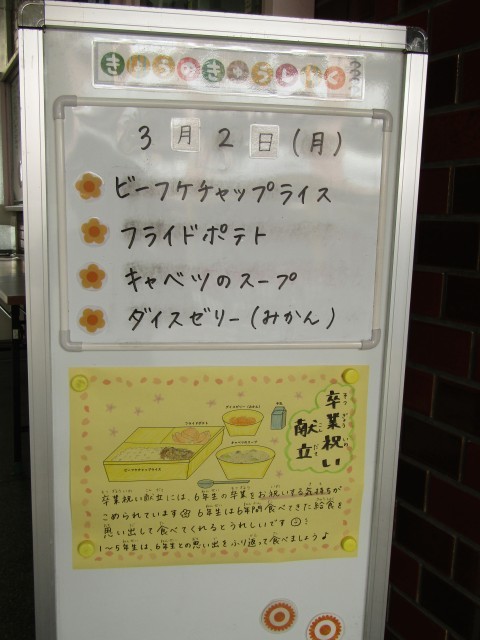 きょうのきゅうしょく
3月2日(月)
ビーフケチャップライス
フライドポテト
キャベツのスープ
ダイスゼリー(みかん)
卒業祝い
献立
ダイスゼリー(みかん)
フライドポテト
キャベツのスープ
ビーフケチャップライス
卒業祝い献立には、6年生の卒業をお祝いする気持ちが
こめられています 6年生は6年間食べてきた給食を
思い出して食べてくれるとうれしいです
1~5年生は、6年生との思い出をふり返って食べましょう♪